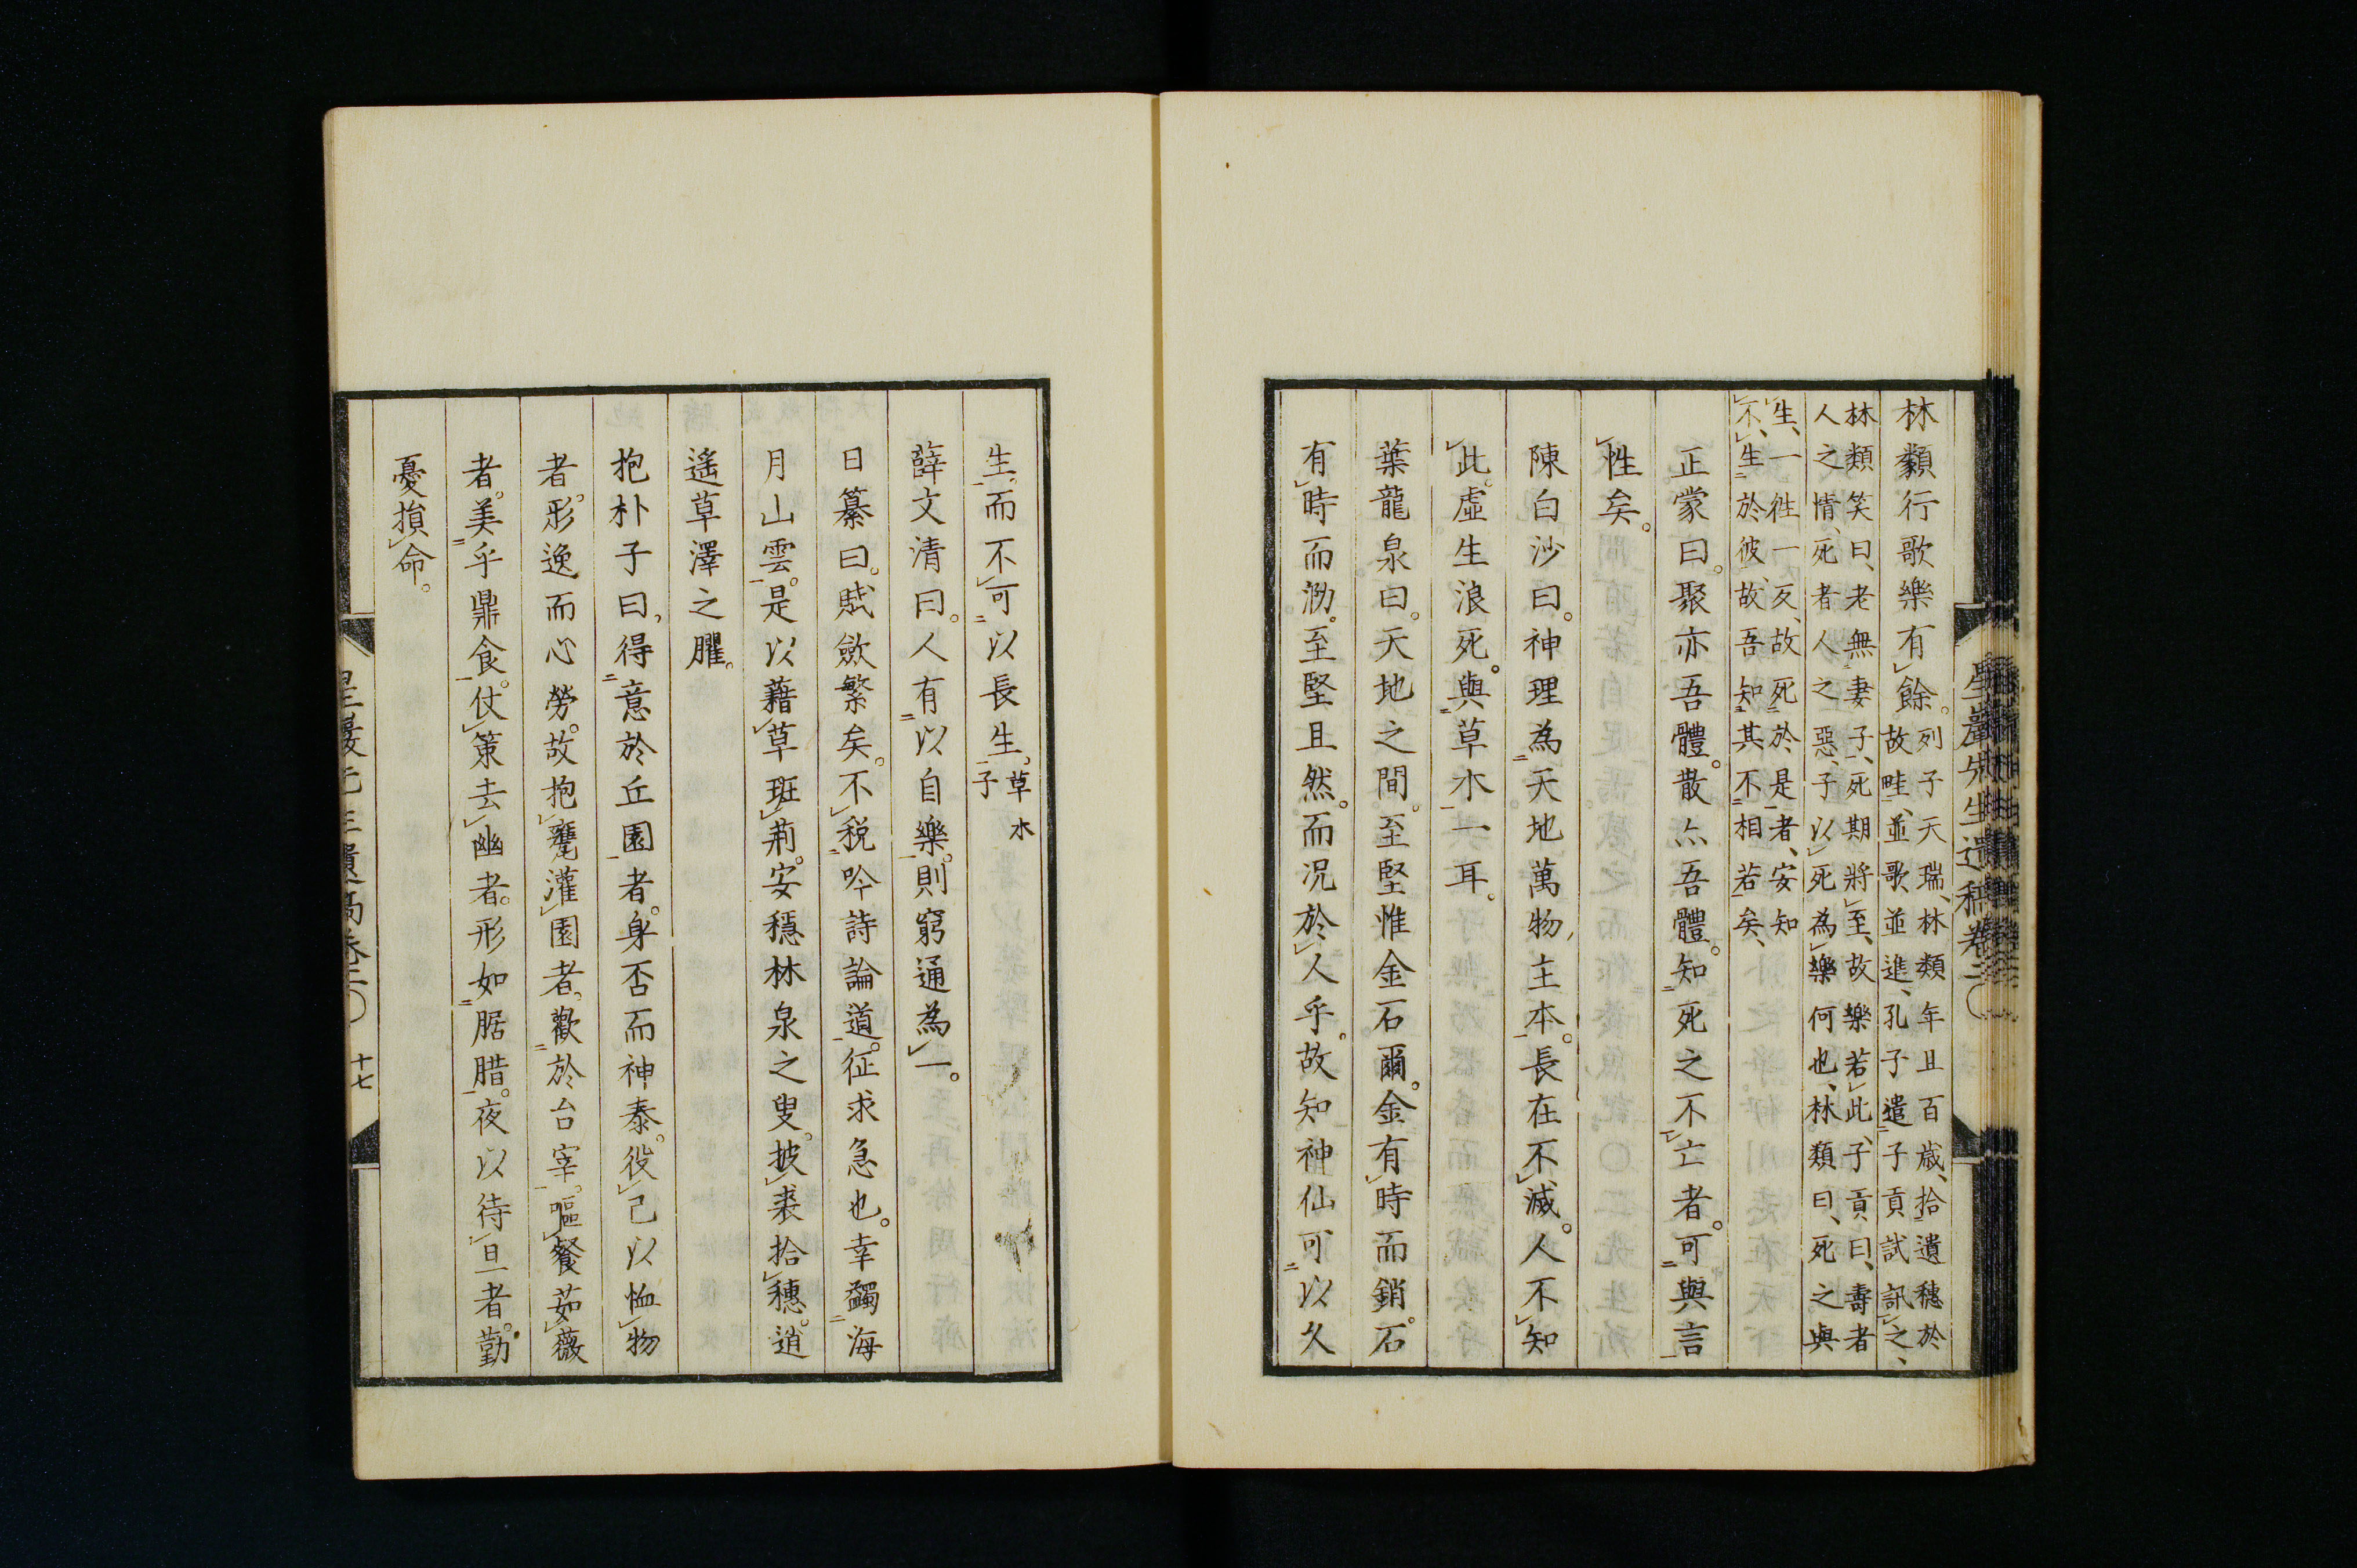 林纇行歌樂有餘。列子天瑞、林類年且百歳、拾遺穗於
故畦、並歌並進、孔子遣子貢試訊之、
林類笑曰、老無妻子、死期將至、故樂若此、子貢曰、壽者
人之情、死者人之惡、子以死為樂何也、林類曰、死之與
生、一徃一反、故死於是者、安知
不生於彼、故吾知其不相若矣、
正蒙曰。聚亦吾體。散亦吾體。知死之不亡者。可與言
性矣。
陳白沙曰。神理為天地萬物主本。長在不滅。人不知
此。虛生浪死。與草木一耳。
葉龍泉曰。天地之間。至堅惟金石爾。金有時而銷。石
有時而泐。至堅且然。而況於人乎。故知神仙可以久
星巖先生遺稿卷二〇
生。而不可以長生。草木
子
薛文清曰。人有以自樂。則窮通為一。
日纂曰。賦斂繁矣。不稅吟詩論道。征求急也。幸蠲海
月山雲。是以藉草班荊。安穩林泉之叟。披裘拾穗。逍
遙草澤之臞。
抱朴子曰。得意於丘園者。身否而神泰。役己以恤物
者。形逸而心勞。故抱甕灌園者。歡於台宰。嘔餐茹薇
者。美乎鼎食。仗策去豳者。形如腒腊。夜以待旦者。勤
憂損命。
十七